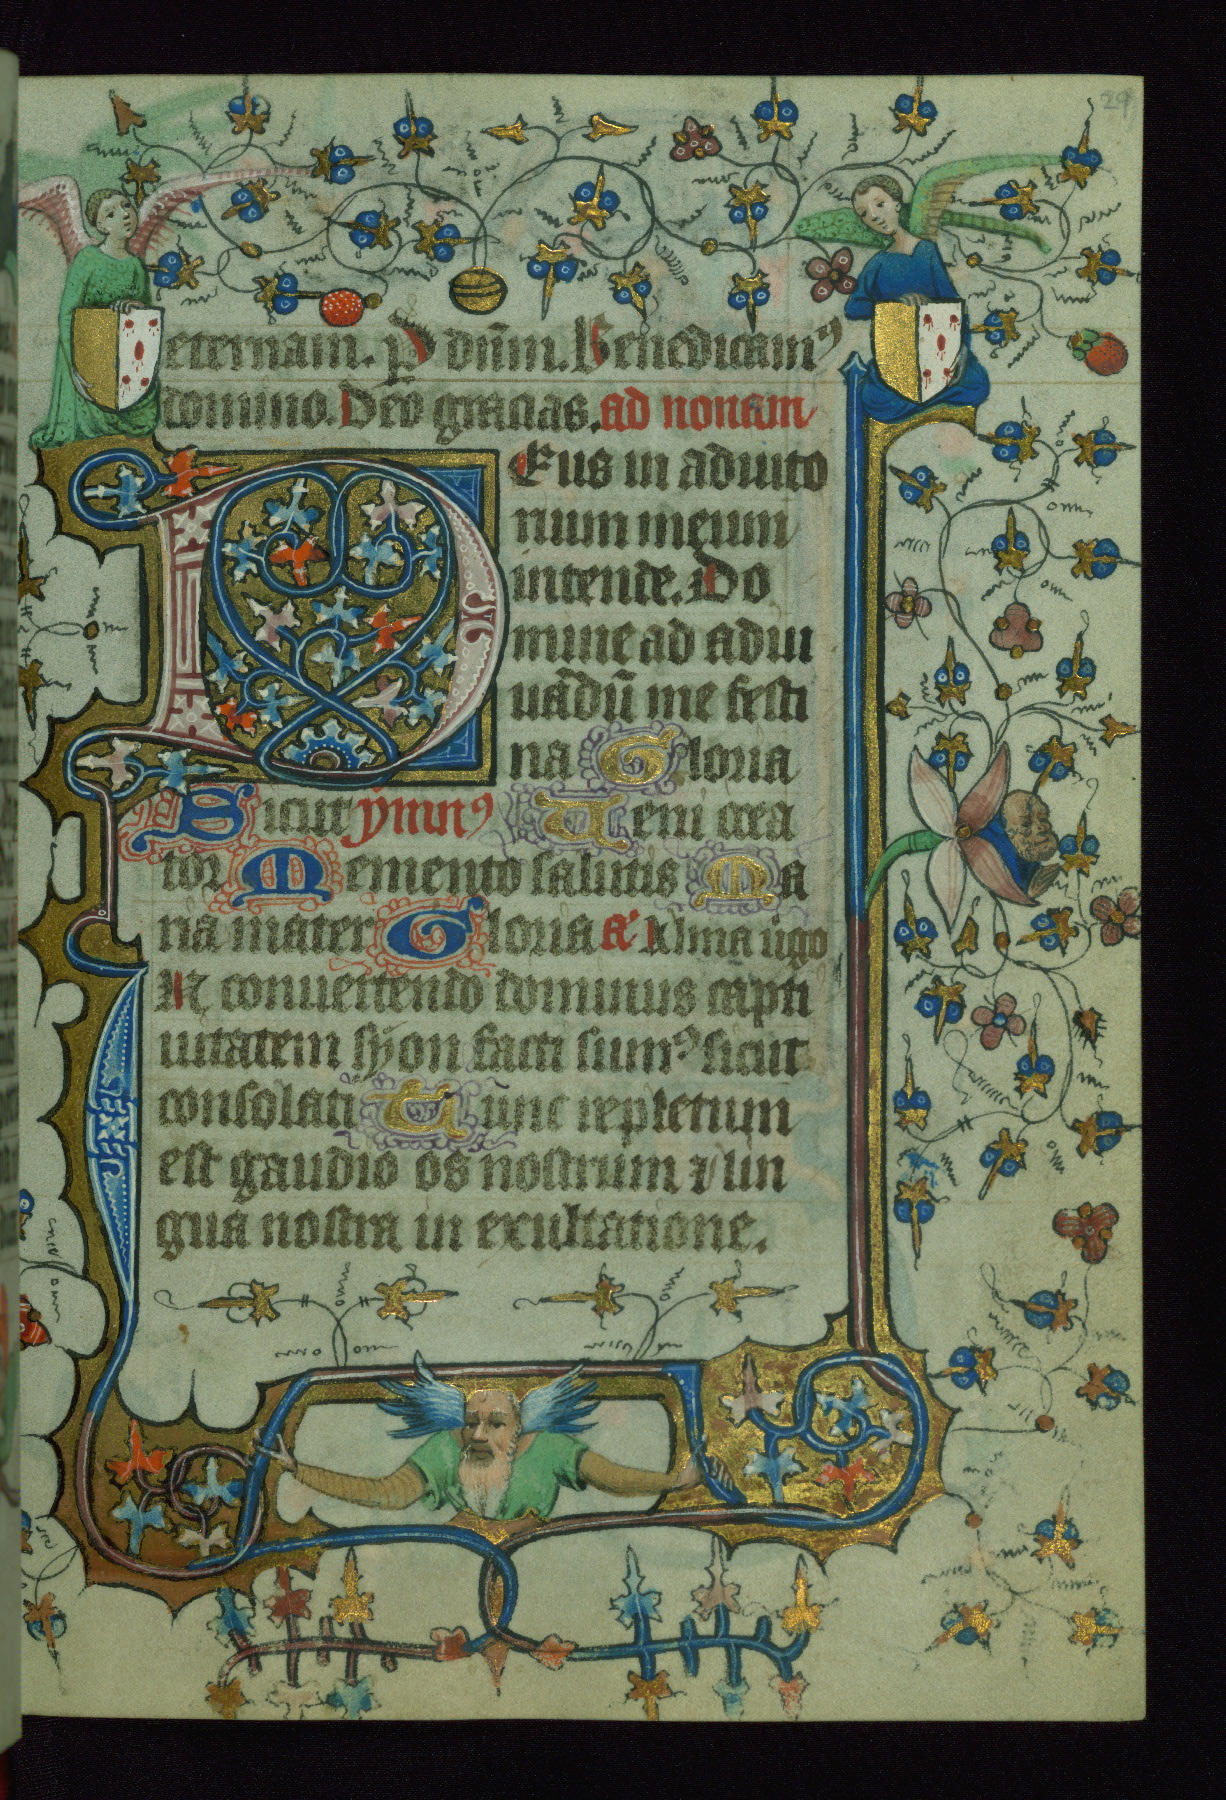 29
eternam. P dn̄m. Benedicamꝰ
domino. Deo gracias. ad nonam
DEus in adiuto
rium meum
intende. Do
mine ad adiu
uādū me festi
na Gloria
Sicut ymnꝰ Ueni crea
tor Memento salutis Ma
ria mater Gloria a᷑ Alma u̇go
IN conuertendo dominus capti
uitatem syon facti sumꝰ sicut
consolati Tunc repletum
est gaudio os nostrum ⁊ lin
gua nostra in exultatione.